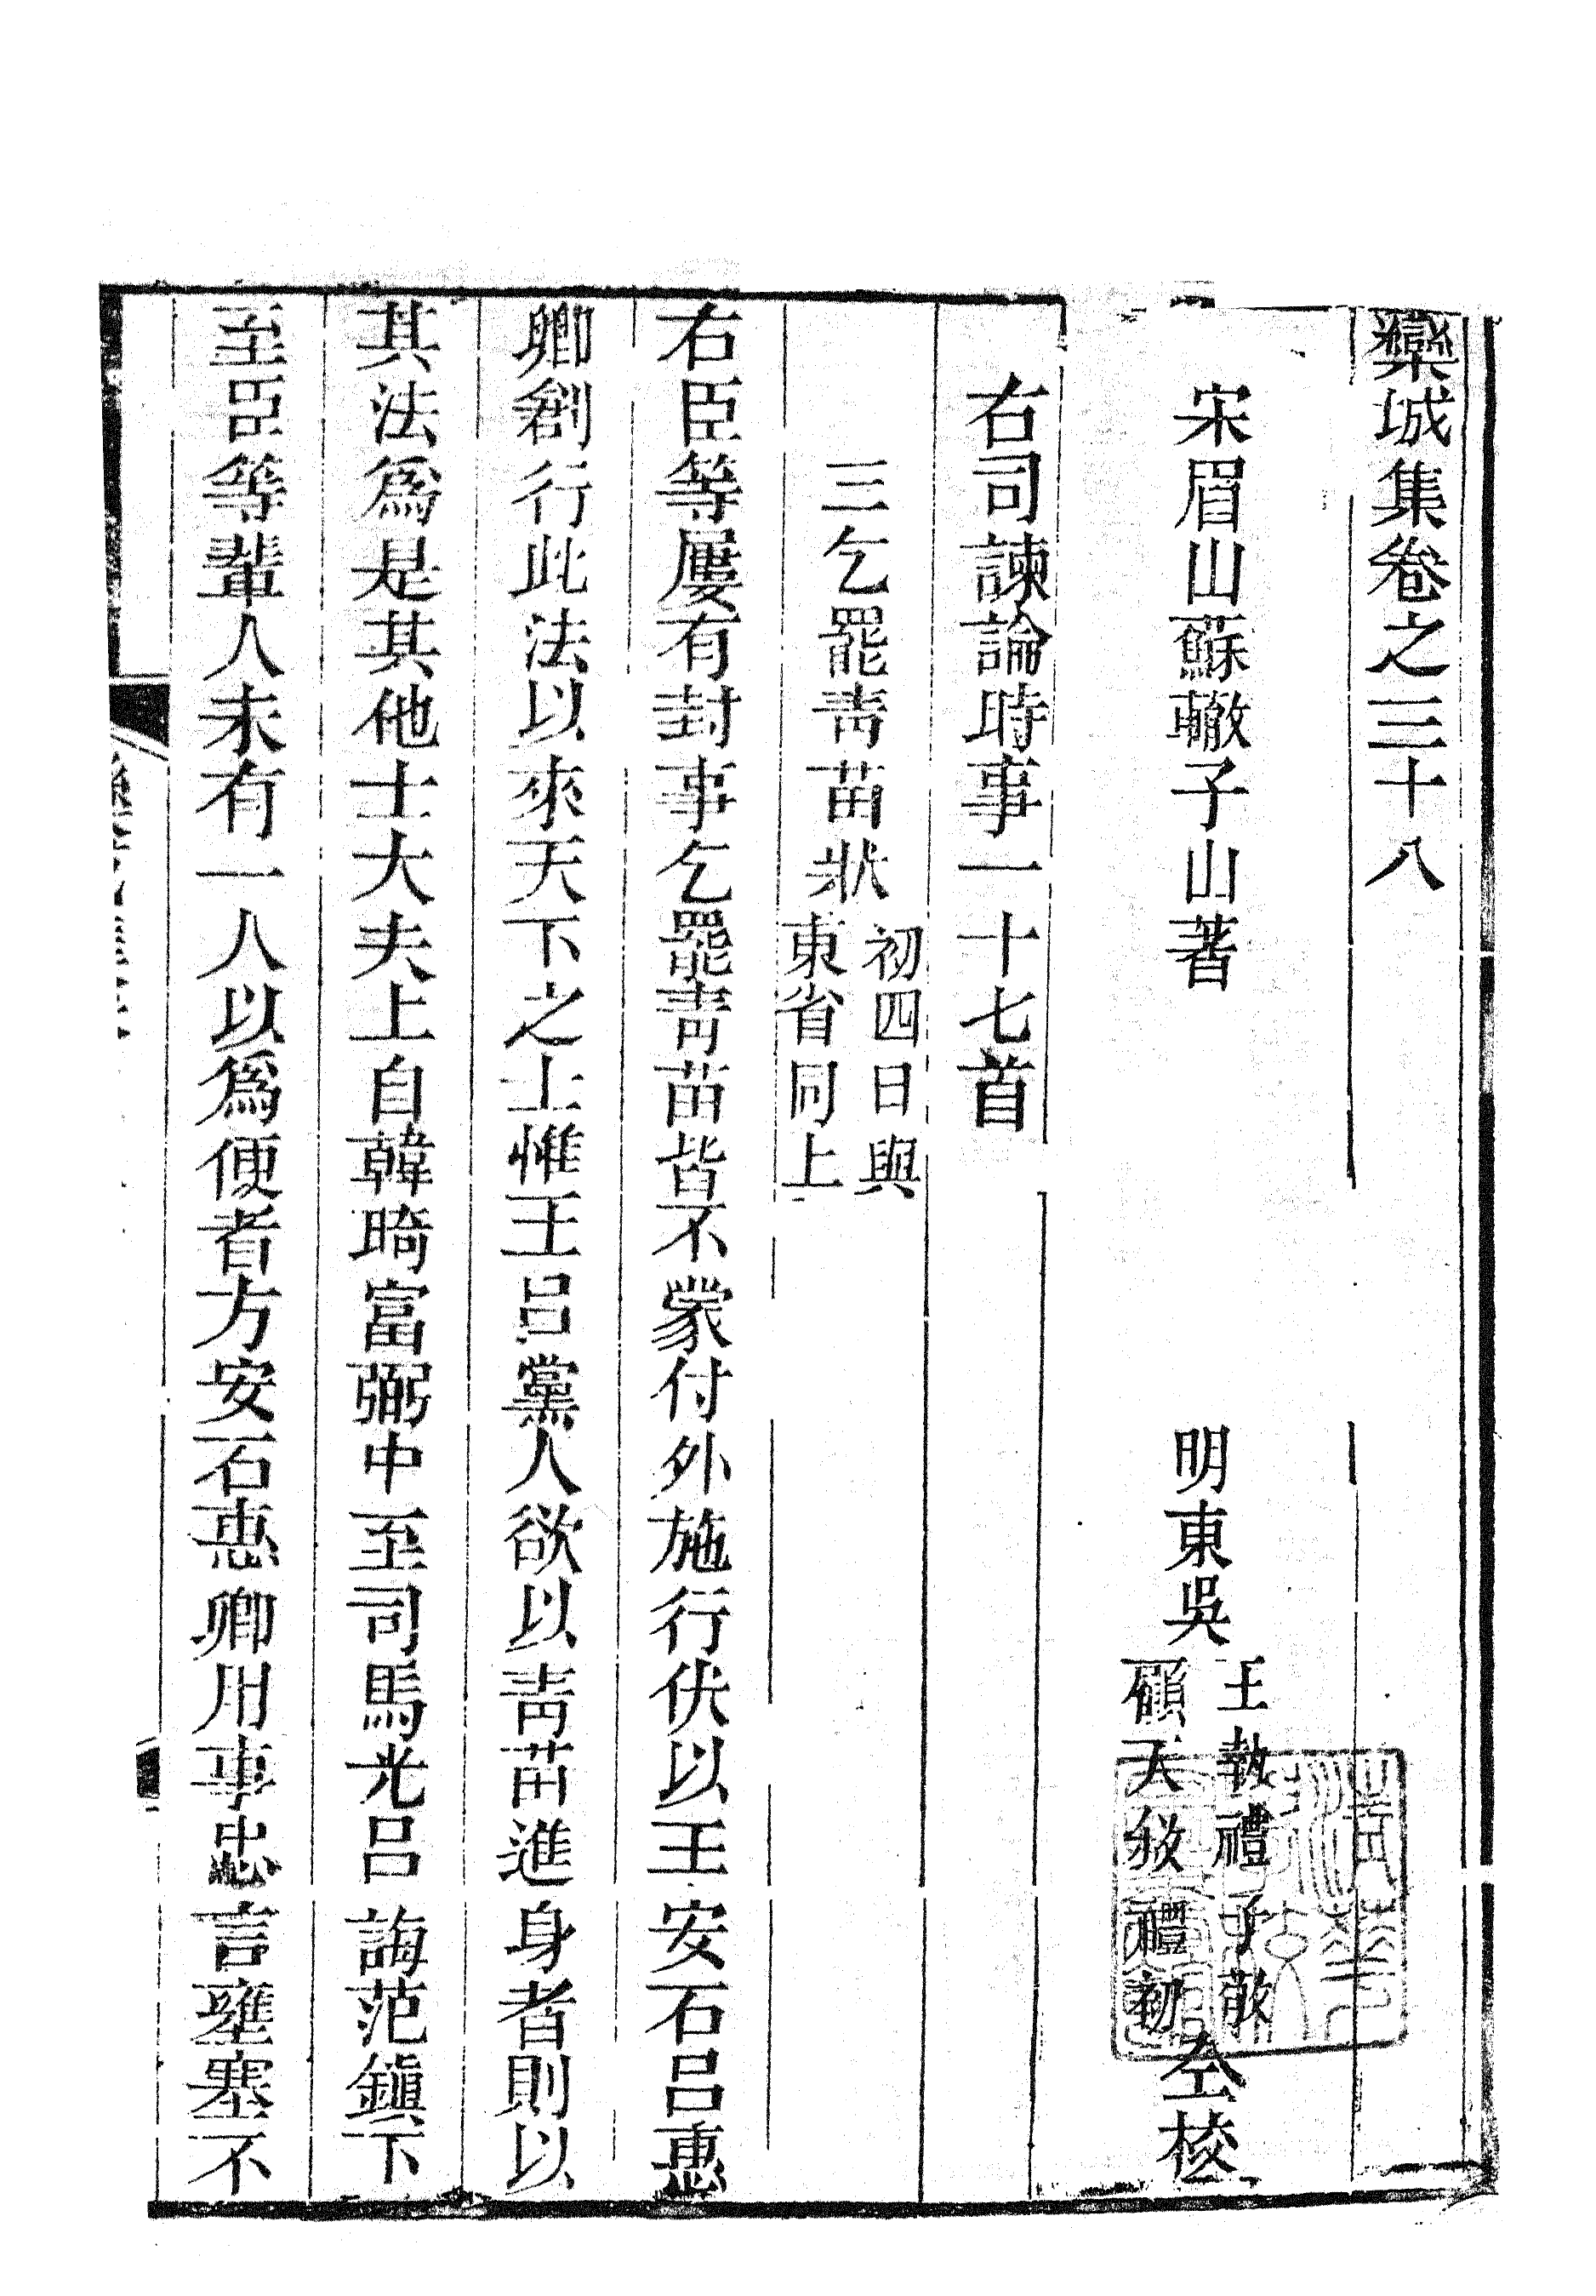 欒城集卷之三十八
宋眉山蘇轍子山著
明東吳
王執禮子敬
顧天叙禮初
仝校
右司諫論時事一十七首
三乞罷靑苗狀
初四日與
東省同上
右臣等屢有封事乞罷靑苗皆不蒙付外施行伏以王安石呂惠
卿創行此法以來天下之士惟王呂黨人欲以靑苗進身者則以
其法爲是其他士大夫上自韓琦富弼中至司馬光呂誨范鎭下
至臣等輩人未有一人以爲便者方安石惠卿用事忠言壅塞不